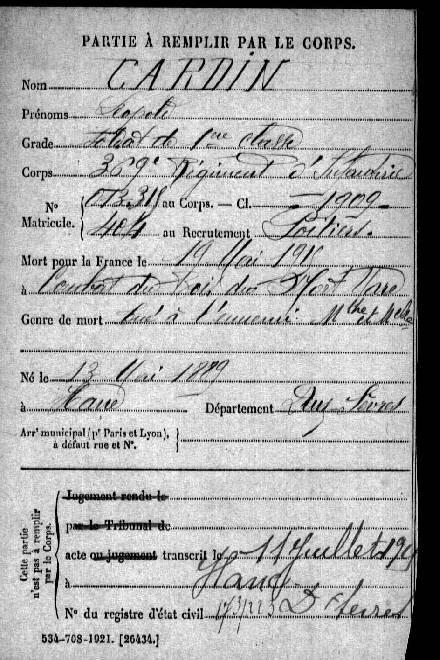 PARTIE À REMPLIR PAR LE CORPS.
Nom CARDIN
Prénoms Léopold
Grade Soldat de 1ère classe
Corps 369e Régiment d'Infanterie
N° Matricule. 013.318 au Corps. — Cl. 1909
404 au Recrutement Poitiers.
Mort pour la France le 19 Mai
à Combat du Bois du Mort Mare
Genre de mort tué à l'ennemi. Mthe et Mlle
Né le 13 Mai 1889
à Département Deux-Sèvres
Arrt municipal (pr Paris et Lyon), à défaut rue et N°.
Cette partie n'est pas à remplir par le Corps.
Jugement rendu le
par le Tribunal de
acte ou jugement transcrit le 11 Juillet
à
N° du registre d'état civil Dx Sèvres
534-708-1921. [26434.]